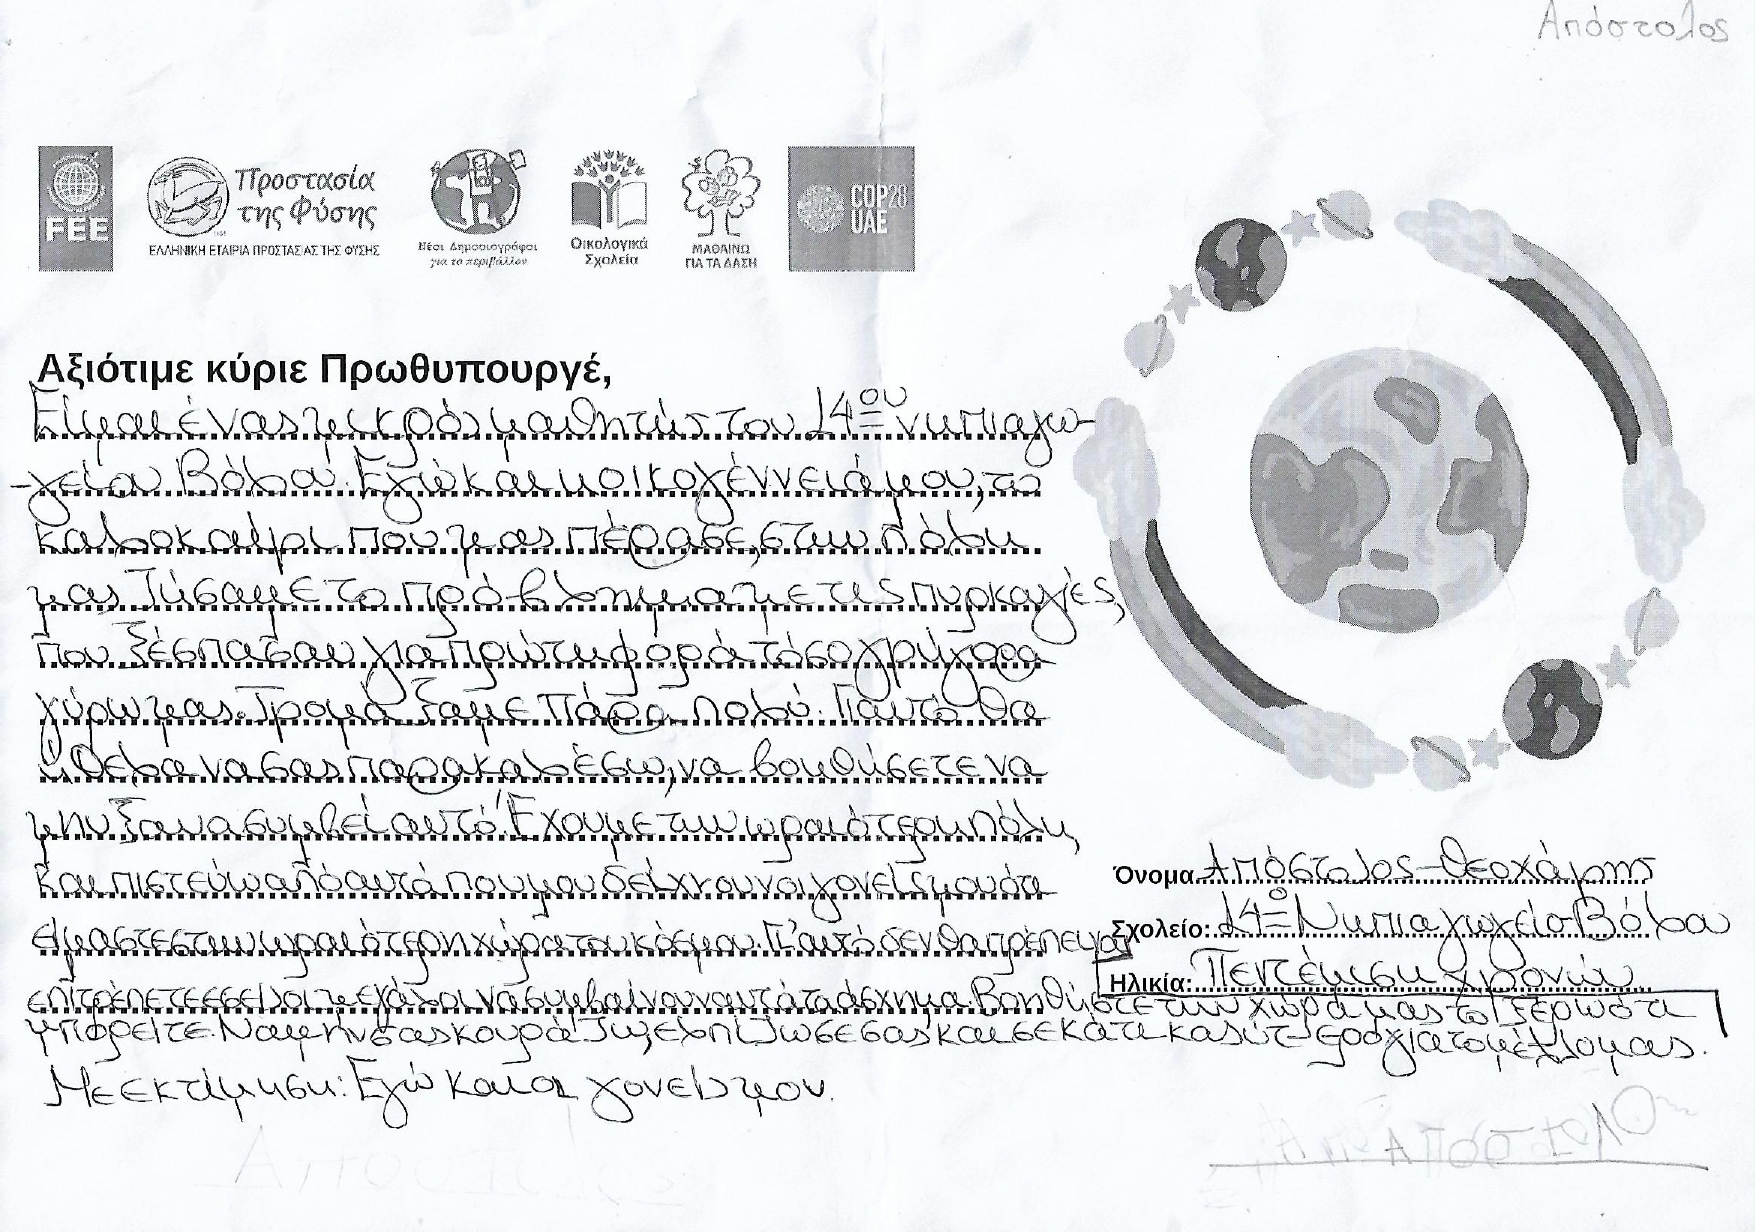 Απόστολος
FEE
Προστασία
της Φύσης
ΕΛΛΗΝΙΚΗ ΕΤΑΙΡΙΑ ΠΡΟΣΤΑΣΙΑΣ ΤΗΣ ΦΥΣΗΣ
Νέοι Δημοσιογράφοι
για το περιβάλλον
Οικολογικά
Σχολεία
ΜΑΘΑΙΝΩ
ΓΙΑ ΤΑ ΔΑΣΗ
COP28
UAE
Αξιότιμε κύριε Πρωθυπουργέ,
Είμαι ένας μικρός μαθητής του 14ου νηπιαγω-
-γείου Βόλου. Εγώ και η οικογέννειά μου, το
καλοκαίρι που μας πέρασε, στην πόλη
μας ζήσαμε το πρόβλημα με τις πυρκαγιές,
που ξέσπασαν για πρώτη φορά τόσο γρήγορα
γύρω μας. Τρομάξαμε πάρα πολύ. Γι αυτό θα
ήθελα να σας παρακαλέσω, να βοηθήσετε να
μην ξανασυμβεί αυτό. Έχουμε την ωραιότερη πόλη,
και πιστεύω από αυτά που μου δείχνουν οι γονείς μου ότι
είμαστε στην ωραιότερη χώρα του κόσμου. Γι' αυτό δεν θα πρέπει να
επιτρέπετε εσείς οι μεγάλοι να συμβαίνουν αυτά τα άσχημα. Βοηθήστε την χώρα μας το ξέρω ότι
μπορείτε. Να μην σας κουράζω, ελπίζω σε σας και σε κάτι καλύτ-ερο για το μέλλον μας.
Με εκτίμηση: Εγώ και οι γονείς μου.
Όνομα Απόστολος-Θεοχάρης
Σχολείο: 14ο Νηπιαγωγείο Βόλου
Ηλικία: Πεντέμιση χρονών